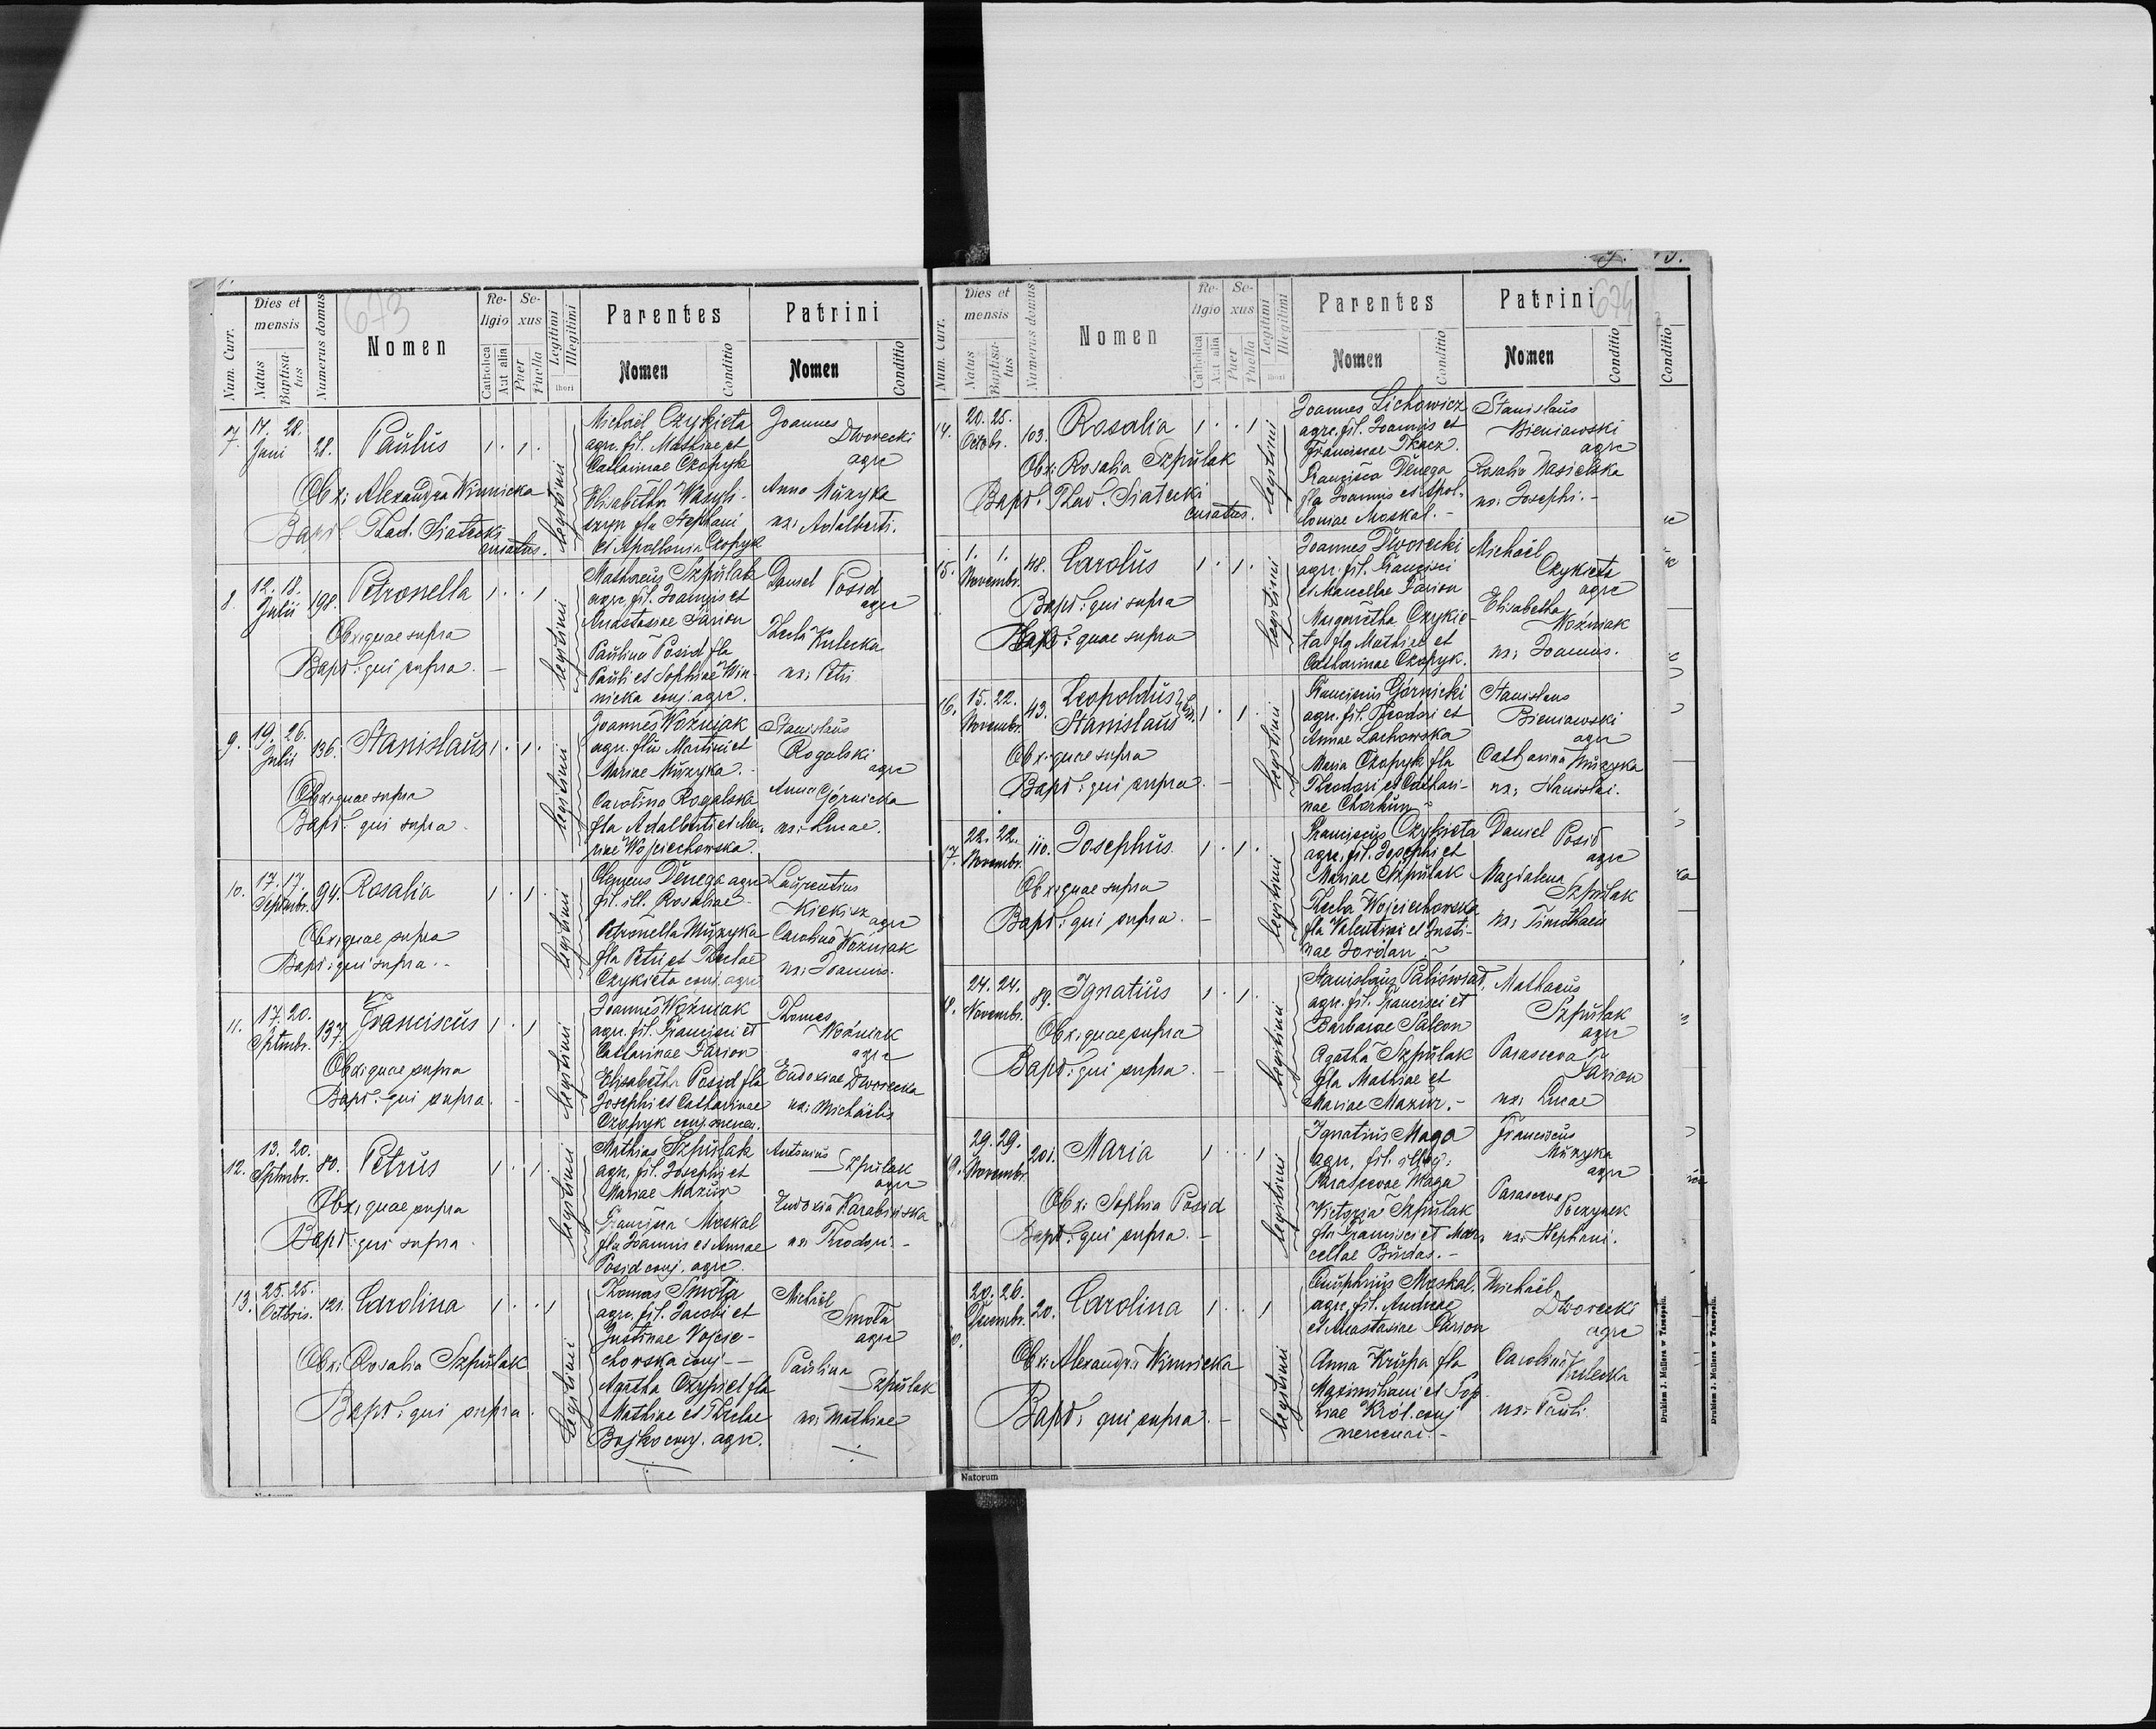 673
Num. Curr.
Dies et mensis
Natus
Baptisa-
tus
Numerus domus
Nomen
Re-
ligio
Catholica
Aut alia
Se-
xus
Puer
Puella
Legitimi
Illegitimi
thori
Parentes
Nomen
Conditio
Patrini
Nomen
Conditio
7. 17. 28. Juni 28. Paulus 1 . 1 .
Obx: Alexandra Winnicka
Bapt: Thad. Siatecki
curatus.
legitimi
Michael Czykieta
agr. fil. Mathiae et
Catharinae Czopyk
Elisabetha Wasyli-
szyn fla Stephani
et Apollonia Czopyk
Joannes
Dworecki
agr
Anna Muzyka
ux: Adalberti.
8. 12. 18. Julii 198. Petronella 1 . . 1
Obx: quae supra
Bapt: qui supra. -
legitimi
Mathaeus Szpulak
agr. fil. Joannis et
Anastasiae Farion
Paulina Posid fla
Pauli et Sophiae Win-
nicka conj. agr.
Daniel Posid
agr
Thecla Kulecka
ux: Petri
9. 19. 26. Julii 136. Stanislaus 1 . 1 .
Obx: quae supra
Bapt: qui supra
legitimi
Joannes Woźniak
agr. flii Martini et
Mariae Muzyka.
Carolina Rogalska
fla Adalberti et Ma-
riae Wojciechowska.
Stanislaus
Rogalski
agr
Anna Górnicka
ux: Lucae.
10. 17. 17. Septmbr. 94. Rosalia 1 . 1 .
Obx: quae supra
Bapt: qui supra. -
legitimi
Clemens Denega agr
fil. ill. Rosaliae
Petronella Muzyka
fla Petri et Theclae
Czykieta conj. agr
Laurentius
Kiekisz agr
Carolina Woźniak
ux: Joannis.
11. 17. 20. Sptmbr. 137. Franciscus 1 . 1
Obx: quae supra
Bapt: qui supra. -
legitimi
Joannes Woźniak
agr. fil. Francisci et
Catharinae Farion
Elisabetha Posid fla
Josephi et Catharinae
Czopyk conj. mercen.
Thomas
Woźniak
agr
Eudoxiae Dworecka
ux: Michaelis
12. 13. 20. Sptmbr. 80. Petrus 1 . 1 .
Obx: quae supra
Bapt: qui supra
legitimi
Mathias Szpulak
agr. fil. Josephi et
Mariae Mazur
Francisca Moskal
fla Joannis et Annae
Posid conj. agr.
Antonius
Szpulak
agr
Eudoxia Karabinska
ux: Theodori. -
13. 25. 25. Octbris. 121. Carolina 1 . . 1
Obx: Rosalia Szpulak
Bapt: qui supra.
legitimi
Thomas Smota
agr. fil. Jacobi et
Justinae Wojcie-
chowska conj. -
Agatha Czypiel fla
Mathiae et Theclae
Bojko conj. agr.
Michael
Smota
agr
Paulina
Szpulak
ux: Mathiae
674
Num. Curr.
Dies et mensis
Natus
Baptisa-
tus
Numerus domus
Nomen
Re-
ligio
Catholica
Aut alia
Se-
xus
Puer
Puella
Legitimi
Illegitimi
thori
Parentes
Nomen
Conditio
Patrini
Nomen
Conditio
Conditio
14. 20. 25. Octobr. 103. Rosalia 1 . . 1
Obx: Rosalia Szpulak
Bapt: Thad. Siatecki
curatus.
legitimi
Joannes Lichowicz
agr. fil. Joannis et
Franciscae Tkacz.
Francisca Denega
fla Joannis et Apol-
loniae Moskal. -
Stanislaus
Bieniawski
agr
Rosalia Nasielska
ux: Josephi. -
15. 1. 1. Novembr. 48. Carolus 1 . 1 .
Bapt: qui supra
Bapt: quae supra
legitimi
Joannes Dworecki
agr. fil. Francisci
et Marcellae Farion
Margaretha Czykie-
ta fla Mathiae et
Catharinae Czopyk.
Michael
Czykieta
agr
Elisabetha
Woźniak
ux: Joannis.
16. 15. 22. Novembr. 43. Leopoldus
Stanislaus 1 . 1 .
Obx: quae supra
Bapt: qui supra. -
legitimi
Franciscus Górnicki
agr. fil. Theodori et
Annae Lachowska
Maria Czopyk fla
Theodori et Cathari-
nae Charkun
Stanislaus
Bieniawski
agr
Catharina Muzyka
ux: Stanislai.
17. 22. 22. Novembr. 110. Josephus 1 . 1 .
Obx: quae supra
Bapt: qui supra. -
legitimi
Franciscus Czykieta
agr. fil. Josephi et
Mariae Szpulak
Thecla Wojciechowska
fla Valentini et Justi-
nae Jordan.
Daniel Posid
agr
Magdalena
Szpulak
ux: Timothaei
18. 24. 24. Novembr. 89. Ignatius 1 . 1 .
Obx: quae supra
Bapt: qui supra. -
legitimi
Stanislaus Paliświat
agr. fil. Francisci et
Barbarae Saleon
Agatha Szpulak
fla Mathiae et
Mariae Mazur. -
Mathaeus
Szpulak
agr
Parasceva
Farion
ux: Lucae
19. 29. 29. Novembr. 201. Maria 1 . . 1
Obx: Sophia Posid
Bapt: qui supra. -
legitimi
Ignatius Maga
agr. fil. illeg:
Parascevae Maga
Victoria Szpulak
fla Francisci et Mar-
cellae Burdas. -
Franciscus
Muzyka
agr
Parasceva
Poczynek
ux: Stephani.
20. 20. 26. Decembr. 20. Carolina 1 . . 1
Obx: Alexandra Winnicka
Bapt: qui supra. -
legitimi
Onuphrius Moskal
agr. fil. Andreae
et Anastasiae Farion
Anna Krupa fla
Maximiliani et Sop-
hiae Król. conj
mercenar. -
Michael
Dworecki
agr
Carolina
Kulecka
ux: Pauli.
Natorum
Drukiem J. Mullera w Tarnopolu.
Drukiem J. Mullera w Tarnopolu.